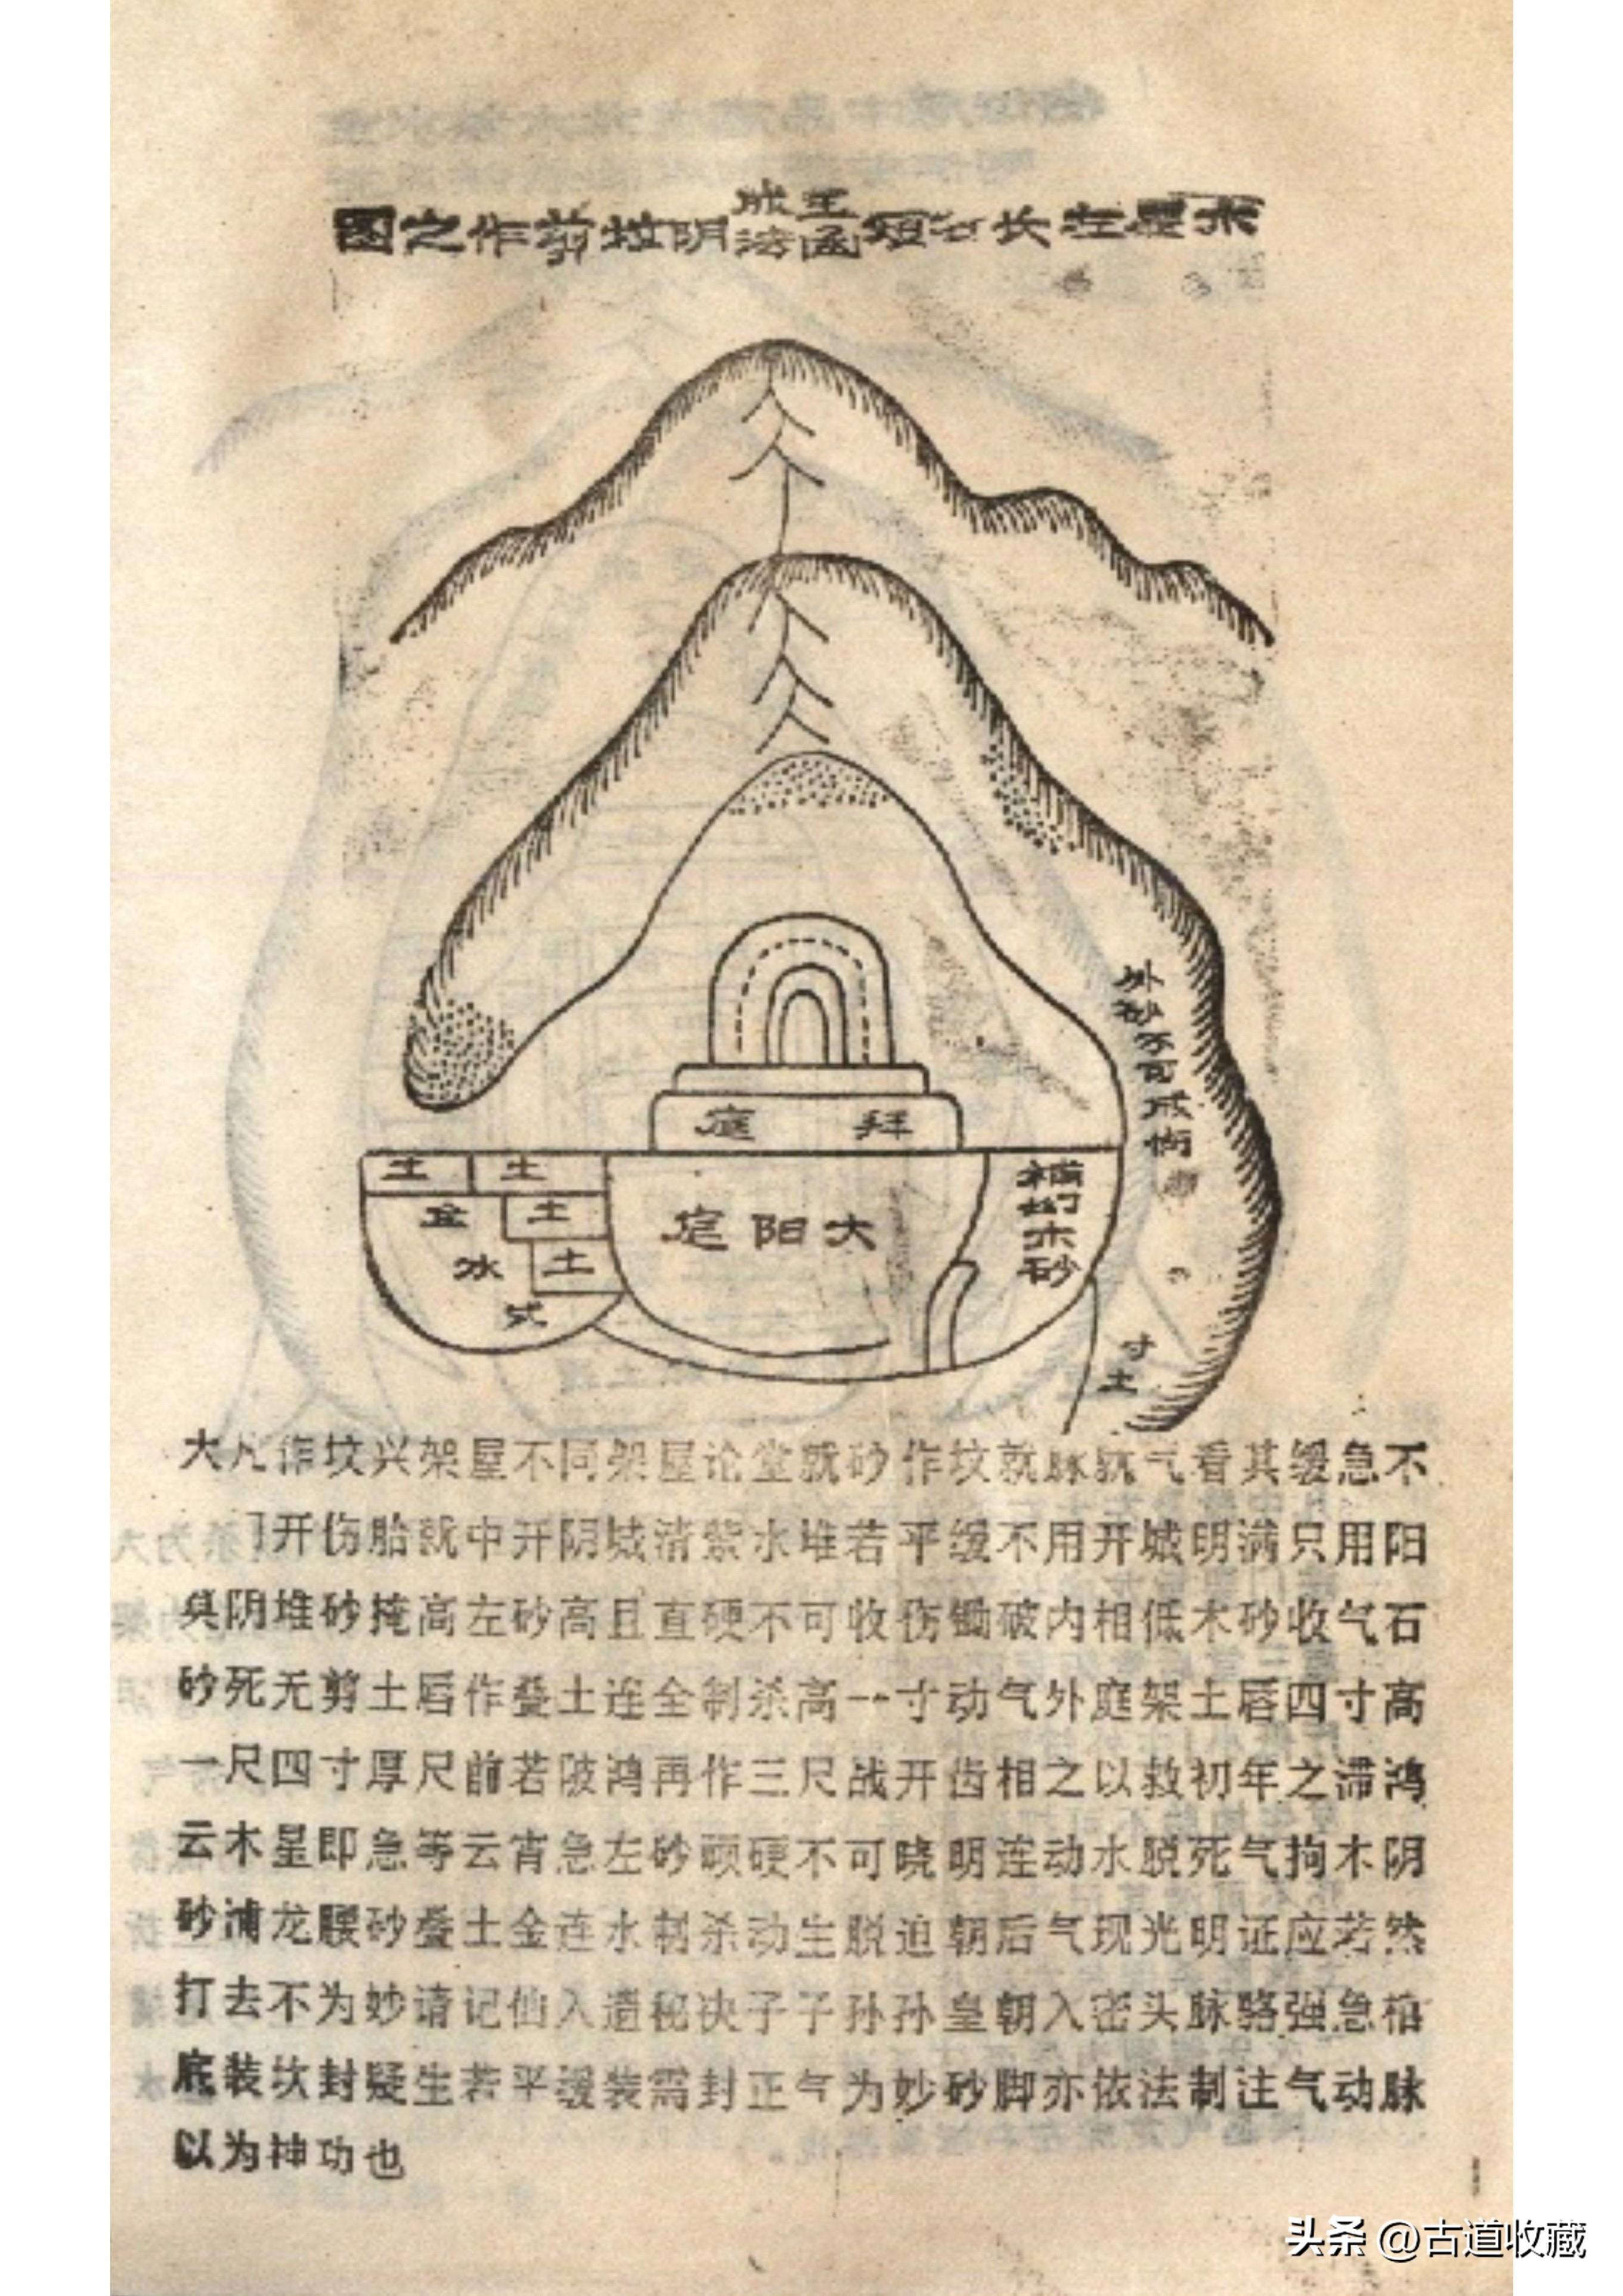 木星左长右短 王函成法 阴坟剪作之图
外砂不可成伤
拜庭
大阳庭
土 土
金 土
水 土
式
补的木砂
寸土
大凡作坟兴架屋不同架屋论堂就砂作坟就脉就气看其缓急不
开伤胎就中开阴城清紫水堆若平缓不用开城明满只用阳
矣阴堆砂掩高左砂高且直硬不可收伤锄破内相低木砂收气石
砂死无剪土唇作叠土连全制杀高一寸动气外庭架土唇四寸高
一尺四寸厚尺前若陂鸿再作三尺战开齿相之以救初年之滞鸿
云木星即急等云宵急左砂硬不可晓明连动水脱死气拘木阴
砂浦龙腰砂叠土金连水制杀动生脱迫朝后气现光明证应若然
打去不为妙请记仙入遗秘决子子孙孙皇朝入密头脉骆强急棺
底装坎封疑生若平缓装需封正气为妙砂脚亦依法制注气动脉
以为神功也
头条 @古道收藏